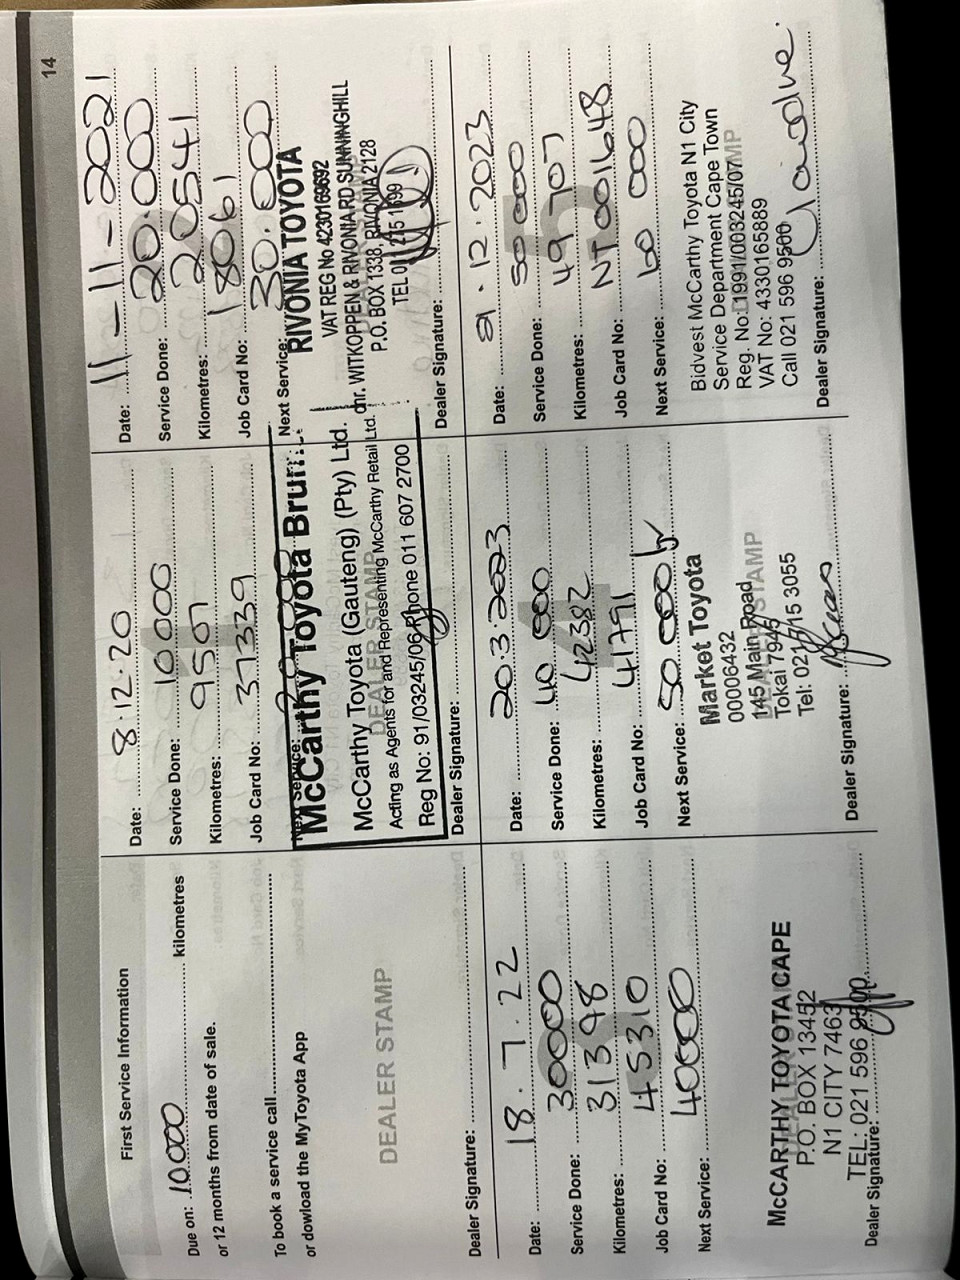 14
First Service Information
Due on: 10000 kilometres
or 12 months from date of sale.
To book a service call
or dowload the MyToyota App
DEALER STAMP
Dealer Signature:
Date: 8.12.20
Service Done: 10 000
Kilometres: 9507
Job Card No: 37339
Next Service:
McCarthy Toyota
McCarthy Toyota (Gauteng) (Pty) Ltd.
Acting as Agents for and Representing McCarthy Retail Ltd.
DEALER STAMP
Reg No: 91/03245/06 Phone 011 607 2700
Dealer Signature:
Date: 11-11-2021
Service Done: 20.000
Kilometres: 20541
Job Card No: 18061
Next Service: 30.000
RIVONIA TOYOTA
VAT REG No 4230169692
cnr. WITKOPPEN & RIVONIA RD SUNNINGHILL
P.O. BOX 1338, RIVONIA 2128
TEL
Dealer Signature:
Date: 18.7.22
Service Done: 30000
Kilometres: 31398
Job Card No: 45310
Next Service: 40000
McCARTHY TOYOTA CAPE
P.O. BOX 13452
N1 CITY 7463
TEL: 021 596
Dealer Signature:
Date: 20.3.2023
Service Done: 40 000
Kilometres: 42382
Job Card No: 41791
Next Service: 50 000
Market Toyota
00006432
145 Main Road
STAMP
Tokai 7945
Tel: 021 715 3055
Dealer Signature:
Date: 01.12.2023
Service Done: 50 000
Kilometres: 49707
Job Card No: NT001648
Next Service: 60 000
Bidvest McCarthy Toyota N1 City
Service Department Cape Town
Reg. No: 1991/003245/07
VAT No: 4330165889
Call 021 596 9500
Dealer Signature: